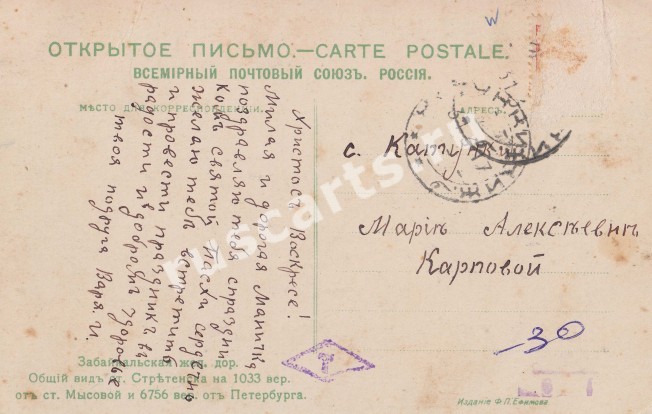 ОТКРЫТОЕ ПИСЬМО.—CARTE POSTALE.
ВСЕМІРНЫЙ ПОЧТОВЫЙ СОЮЗЪ. РОССІЯ.
МѢСТО ДЛЯ КОРРЕСПОНДЕНЦІИ.
АДРЕСЪ
Христосъ Воскресе!
Милая и дорогая Маничка
поздравляю тебя спраздни
комъ святой Пасхи сердечно
желаю тебѣ встретить
и провести праздникъ въ
радости и въ добромъ здоровье
твоя подруга Варя. И.
с. Катунки
Маріи Алексѣевнѣ
Карповой
-30
Забайкальская жел. дор.
Общій видъ ст. Стрѣтенска на 1033 вер.
отъ ст. Мысовой и 6756 вер. отъ Петербурга.
Изданіе Ф.П.Ефимова.
ruscarts.ru